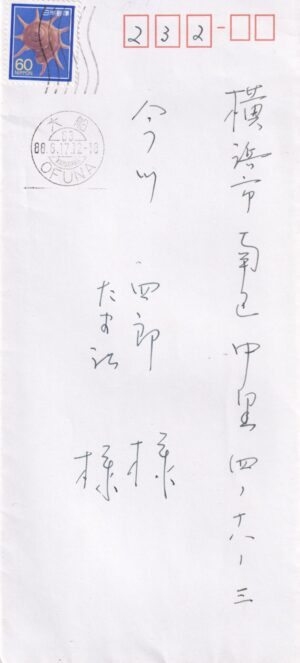 日本郵便
60
NIPPON
大船
88.6.17.12-18
OFUNA
232-
横浜市南区中里四ノ十八ノ三
今川 四郎 様
たま江 様